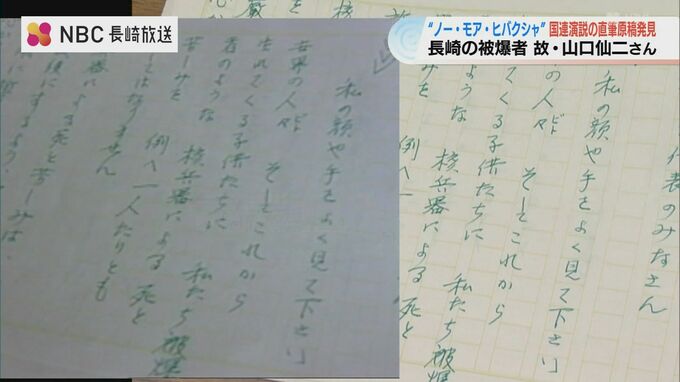 NBC 長崎放送
“ノー・モア・ヒバクシャ”国連演説の直筆原稿発見
長崎の被爆者 故・山口仙二さん
私の顔や手をよく見て下さい
世界の人々 そしてこれから
ビト
生れてくる子供たちに 私たち被爆
者のような 核兵器による 死と
苦しみを 例へ一人たりとも
ことはなりません
兵器による死と苦しみは
代表のみなさん
私の顔や手をよく見て下さい
の人々 そしてこれから
ビト
てくる子供たちに 私たち被爆
ような 核兵器による 死と
みを 例へ一